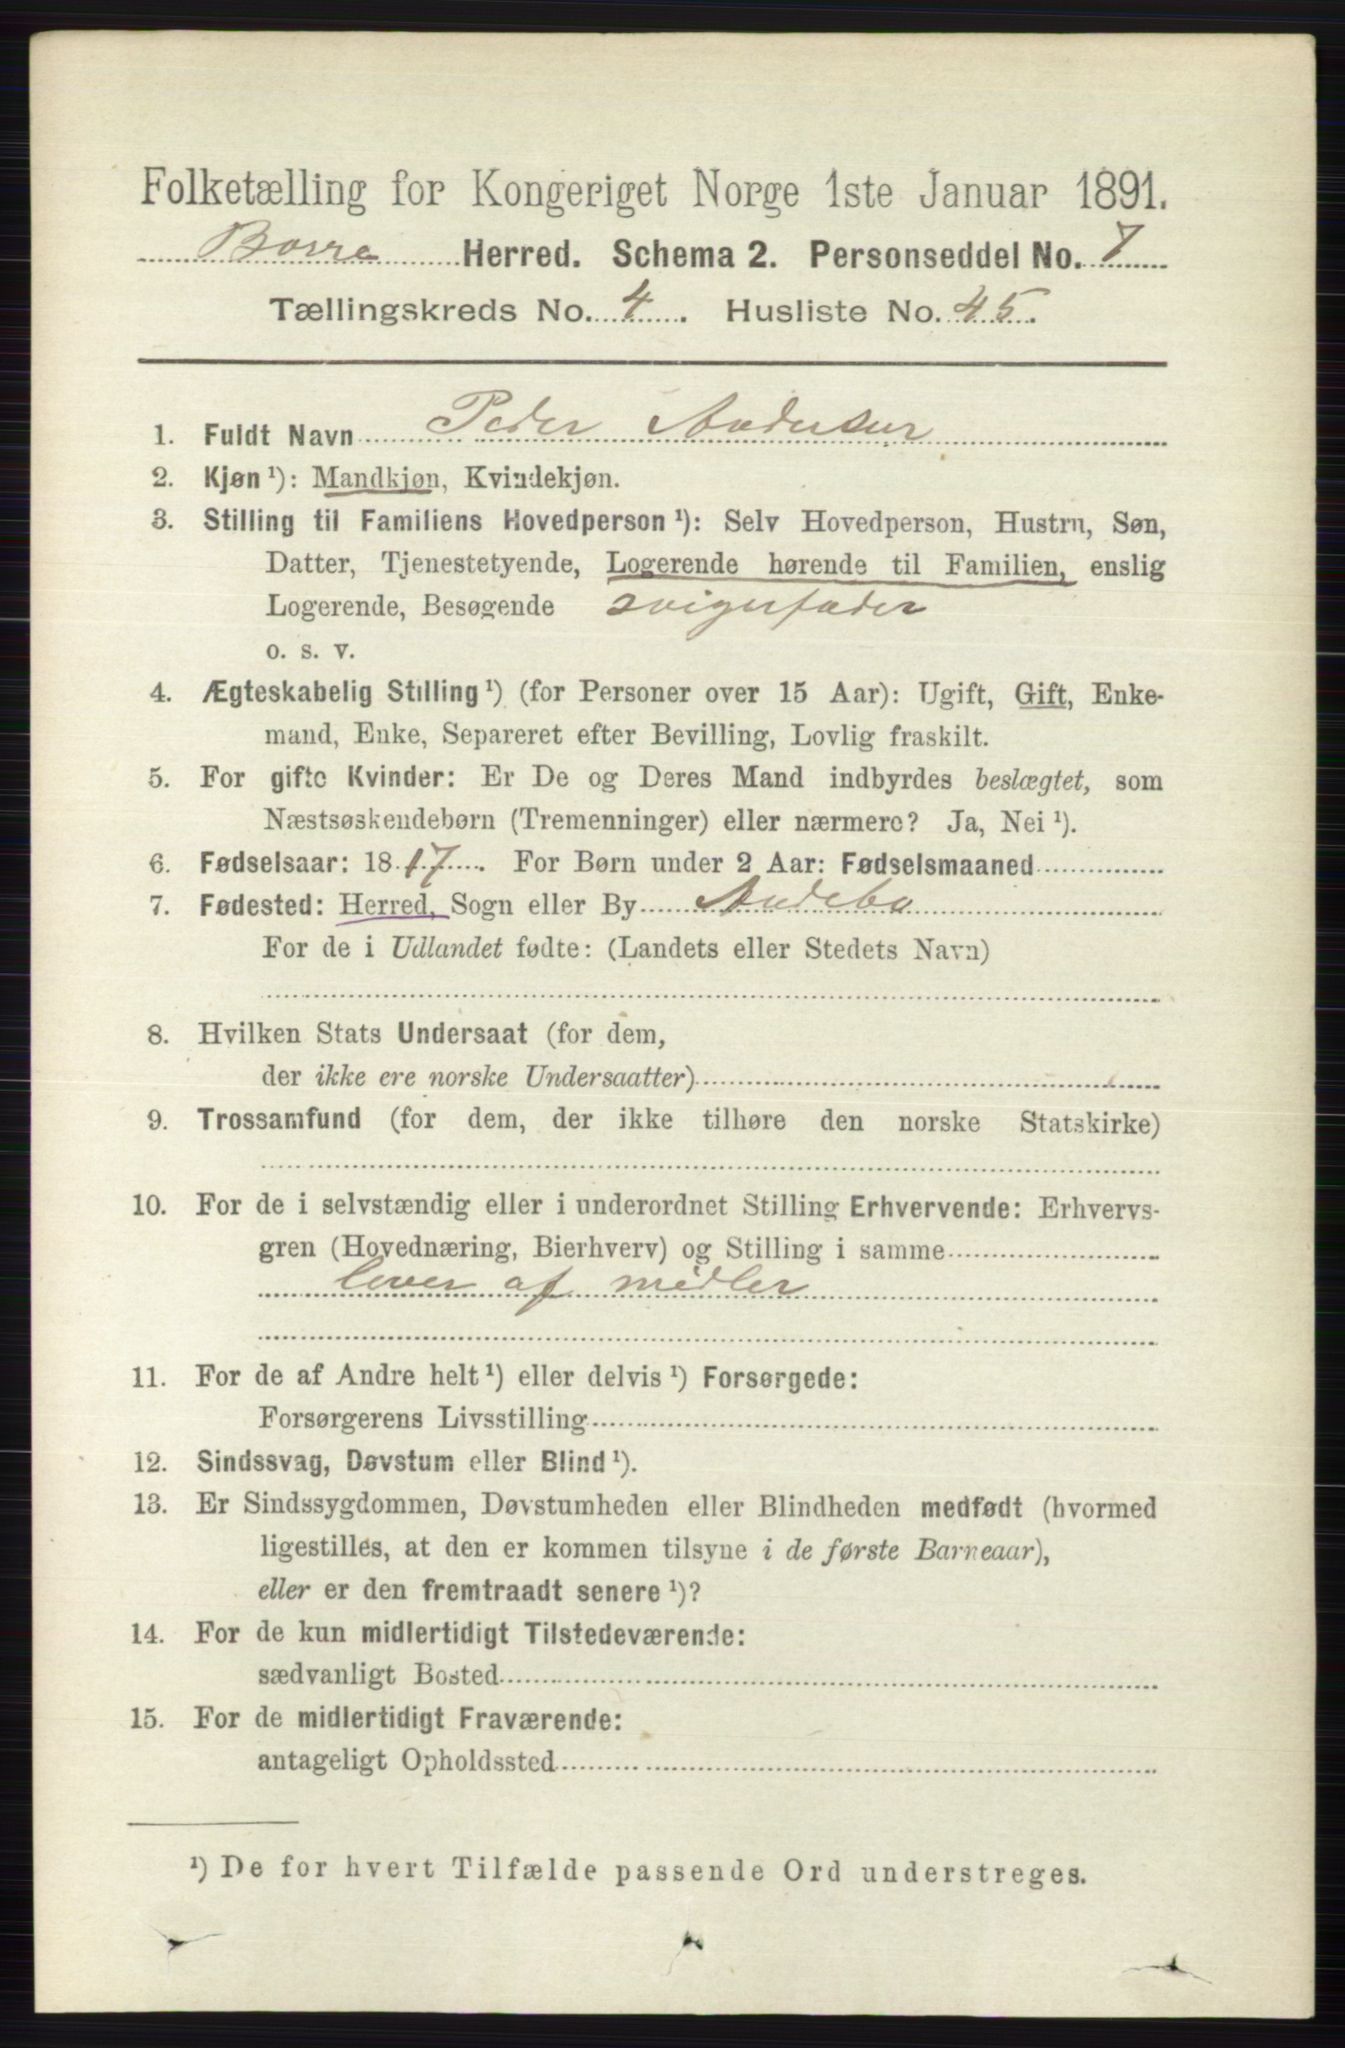 Folketælling for Kongeriget Norge 1ste Januar 1891.
Borre Herred. Schema 2. Personseddel No. 7
Tællingskreds No. 4. Husliste No. 45.
1. Fuldt Navn Peder Andersen
2. Kjøn ¹): Mandkjøn, Kvindekjøn.
3. Stilling til Familiens Hovedperson ¹): Selv Hovedperson, Hustru, Søn,
Datter, Tjenestetyende, Logerende hørende til Familien, enslig
Logerende, Besøgende svigerfader
o. s. v.
4. Ægteskabelig Stilling ¹) (for Personer over 15 Aar): Ugift, Gift, Enke-
mand, Enke, Separeret efter Bevilling, Lovlig fraskilt.
5. For gifte Kvinder: Er De og Deres Mand indbyrdes beslægtet, som
Næstsøskendebørn (Tremenninger) eller nærmere? Ja, Nei ¹).
6. Fødselsaar: 1817. For Børn under 2 Aar: Fødselsmaaned
7. Fødested: Herred, Sogn eller By Andebu
For de i Udlandet fødte: (Landets eller Stedets Navn)
8. Hvilken Stats Undersaat (for dem,
der ikke ere norske Undersaatter)
9. Trossamfund (for dem, der ikke tilhøre den norske Statskirke)
10. For de i selvstændig eller i underordnet Stilling Erhvervende: Erhvervs-
gren (Hovednæring, Bierhverv) og Stilling i samme
lever af midler
11. For de af Andre helt ¹) eller delvis ¹) Forsørgede:
Forsørgerens Livsstilling
12. Sindssvag, Døvstum eller Blind ¹).
13. Er Sindssygdommen, Døvstumheden eller Blindheden medfødt (hvormed
ligestilles, at den er kommen tilsyne i de første Barneaar),
eller er den fremtraadt senere ¹)?
14. For de kun midlertidigt Tilstedeværende:
sædvanligt Bosted
15. For de midlertidigt Fraværende:
antageligt Opholdssted
¹) De for hvert Tilfælde passende Ord understreges.